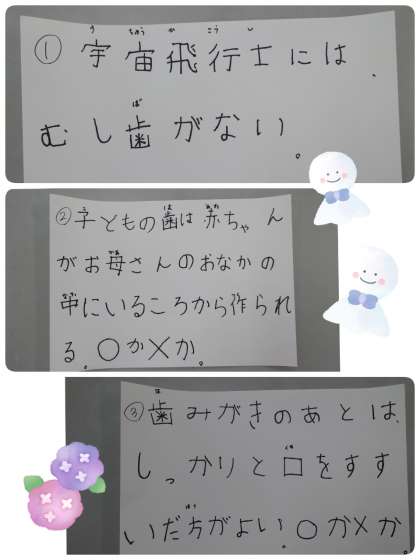 う ちゅう こう し
①宇宙飛行士には、
ば
むし歯がない。
②子どもの歯は赤ちゃん
がお母さんのおなかの
中にいるころから作られ
る。○か×か。
は
③歯みがきのあとは、
しっかりと口をすす
ほう
いだ方がよい。○か×か。